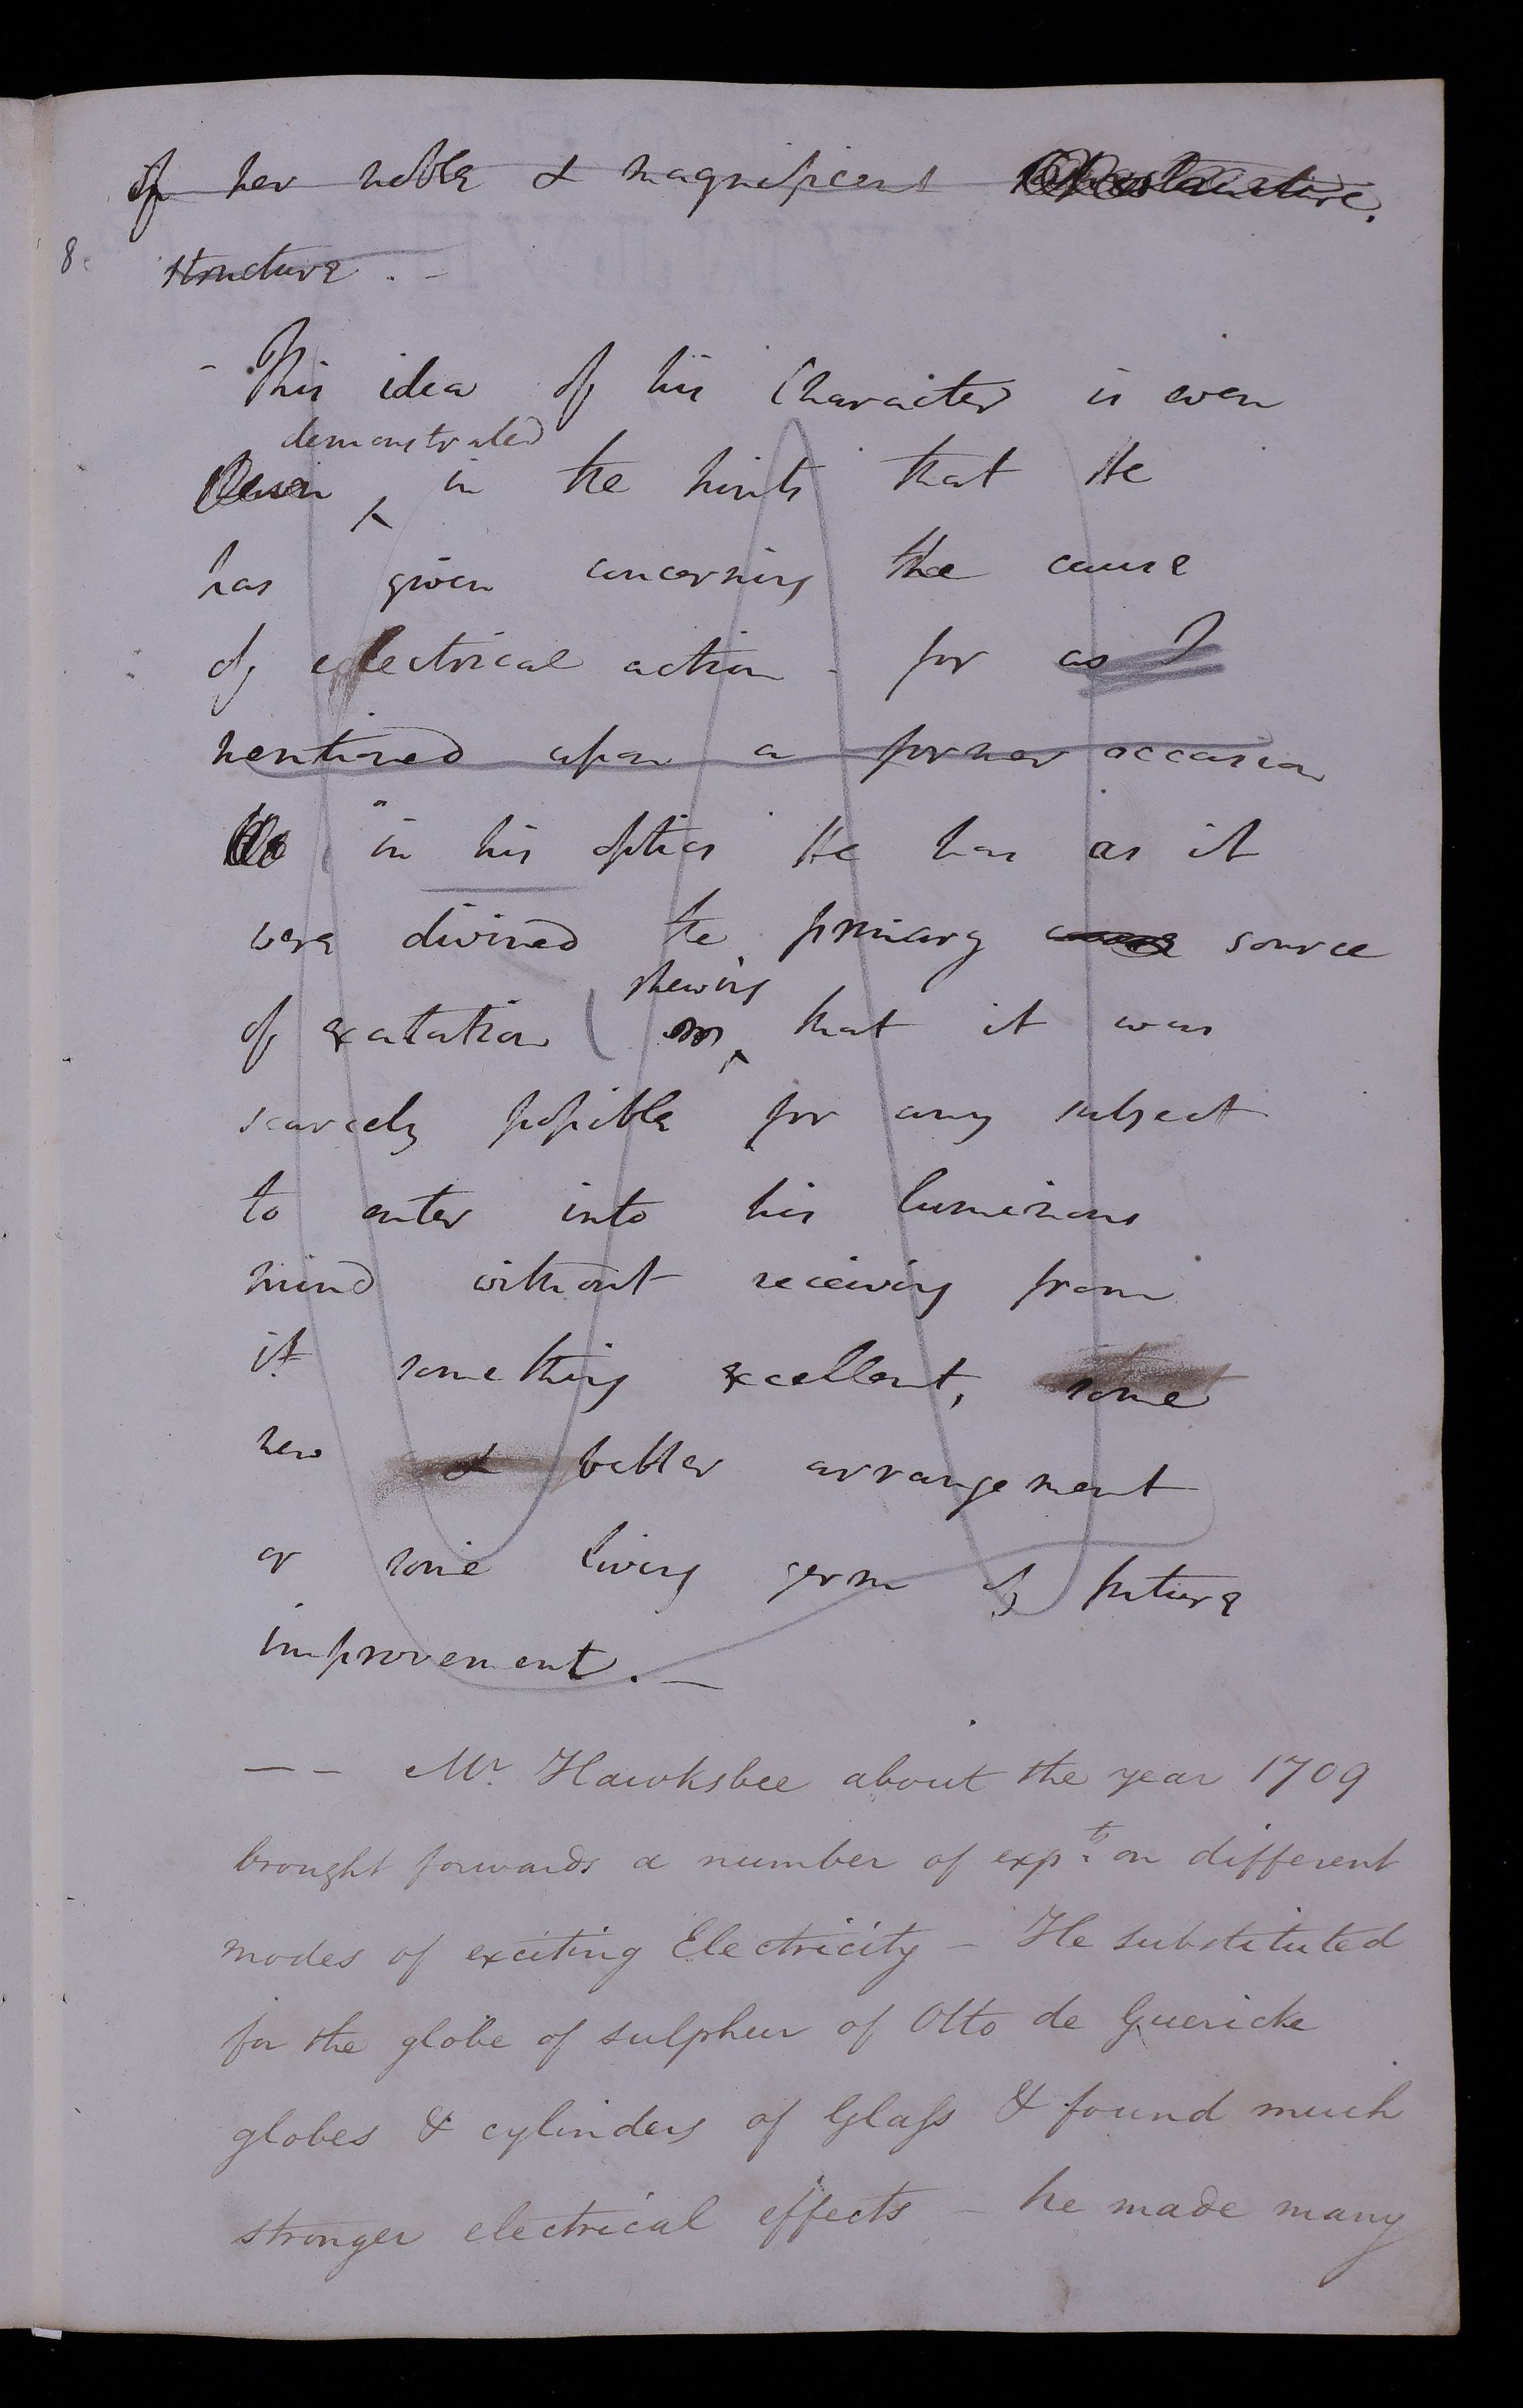 of her noble & magnificent
8.
structure. -
- This idea of his Character is even
demonstrated
in the hints that He
has given concerning the cause
of electrical action - for as I
mentioned upon a former occasion
in his optics He has as it
were divined the primary source
shewing
of excitation that it was
scarcely possible for any subject
to enter into his luminous
mind without receiving from
it something excellent, some
new & better arrangement
or some living germ of future
improvement. —
— — Mr. Hawksbee about the year 1709
brought forwards a number of expts on different
modes of exciting Electricity – He substituted
for the globe of sulphur of Otto de Guericke
globes & cylinders of Glass & found much
stronger electrical effects – he made many